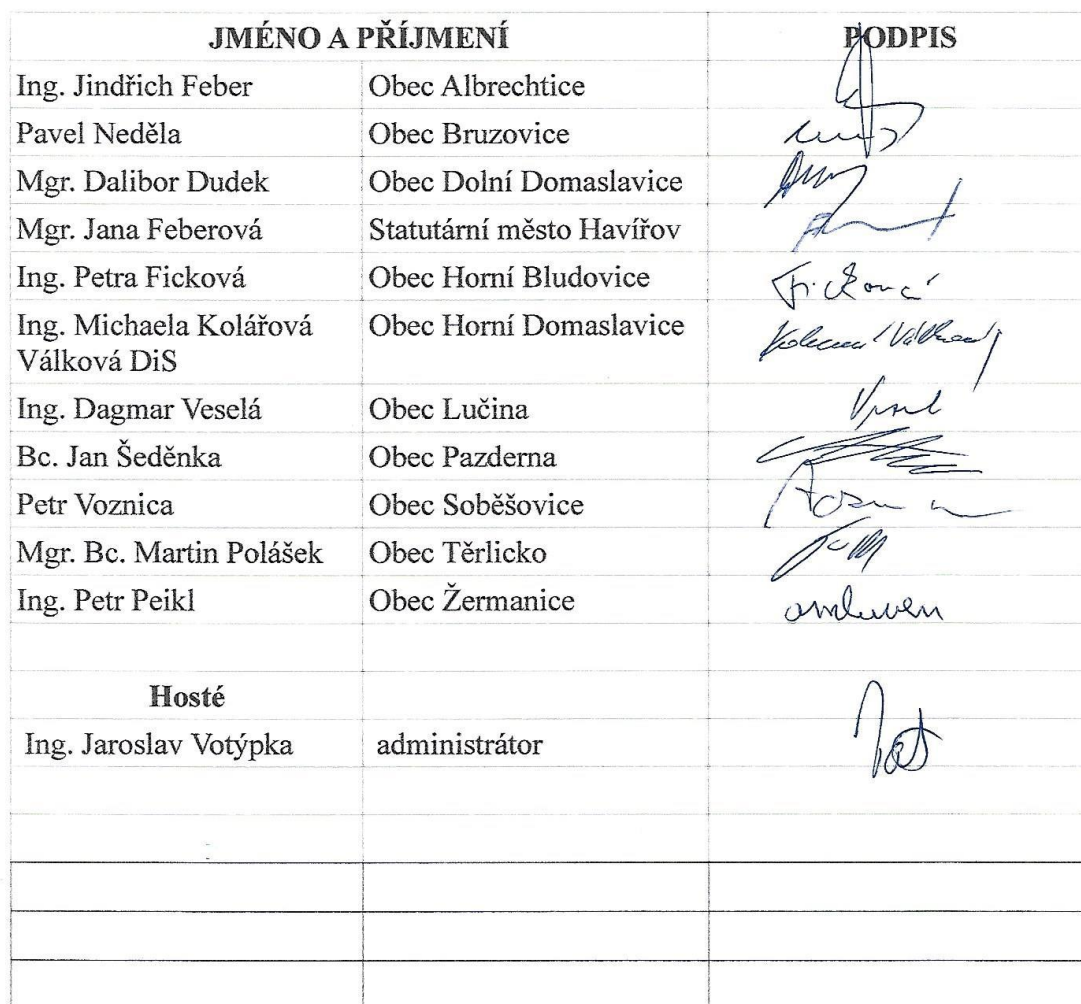 JMÉNO A PŘÍJMENÍ PODPIS
Ing. Jindřich Feber Obec Albrechtice
Pavel Neděla Obec Bruzovice
Mgr. Dalibor Dudek Obec Dolní Domaslavice
Mgr. Jana Feberová Statutární město Havířov
Ing. Petra Ficková Obec Horní Bludovice Ficková
Ing. Michaela Kolářová Obec Horní Domaslavice
Válková DiS
Ing. Dagmar Veselá Obec Lučina
Bc. Jan Šeděnka Obec Pazderna
Petr Voznica Obec Soběšovice
Mgr. Bc. Martin Polášek Obec Těrlicko
Ing. Petr Peikl Obec Žermanice omluven
Hosté
Ing. Jaroslav Votýpka administrátor